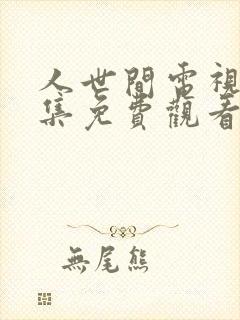 人世間電視
集免費觀看
無尾熊